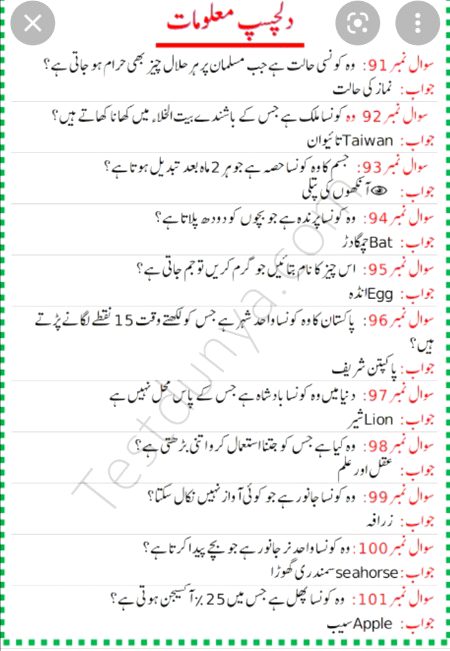 دلچسپ معلومات
سوال نمبر 91: وہ کونسی حالت ہے جب مسلمان پر ہر حلال چیز بھی حرام ہو جاتی ہے؟
جواب: نماز کی حالت
سوال نمبر 92 وہ کونسا ملک ہے جس کے باشندے بیت الخلاء میں کھانا کھاتے ہیں؟
جواب: Taiwan تائیوان
سوال نمبر 93: جسم کا وہ کونسا حصہ ہے جو ہر 2 ماہ بعد تبدیل ہوتا ہے؟
جواب: 👁آنکھوں کی پتلی
سوال نمبر 94: وہ کونسا پرندہ ہے جو بچوں کو دودھ پلاتا ہے؟
جواب: Bat چمگادڑ
سوال نمبر 95: اس چیز کا نام بتائیں جو گرم کریں تو جم جاتی ہے؟
جواب: Egg انڈہ
سوال نمبر 96: پاکستان کا وہ کونسا واحد شہر ہے جس کو لکھتے وقت 15 نقطے لگانے پڑتے
ہیں؟
جواب: پاکپتن شریف
سوال نمبر 97: دنیا میں وہ کونسا بادشاہ ہے جس کے پاس محل نہیں ہے
جواب: Lion شیر
سوال نمبر 98: وہ کیا ہے جس کو جتنا استعمال کرو اتنی بڑھتی ہے؟
جواب: عقل اور علم
سوال نمبر 99: وہ کونسا جانور ہے جو کوئی آواز نہیں نکال سکتا؟
جواب: زرافہ
سوال نمبر 100: وہ کونسا واحد نر جانور ہے جو بچے پیدا کرتا ہے؟
جواب: seahorse سمندری گھوڑا
سوال نمبر 101: وہ کونسا پھل ہے جس میں 25٪ آکسیجن ہوتی ہے؟
جواب: Apple سیب
Testdunya.com